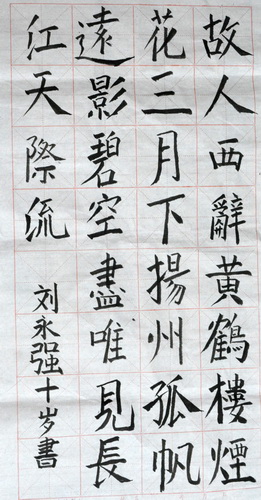 故人西辭黄鶴樓煙
花三月下揚州孤帆
遠影碧空盡唯見長
江天際流
刘永强十岁書